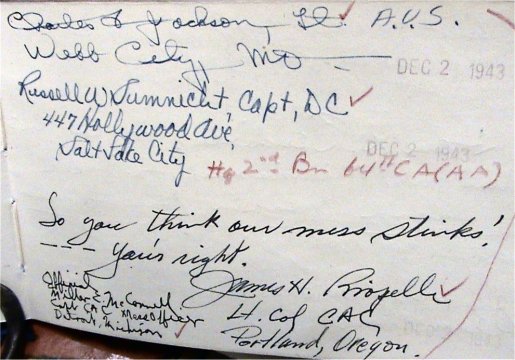 Charles F Jackson, Lt. A.U.S.
Webb City, Mo
DEC 2 1943
Russell W Sumnicht Capt, DC
447 Hollywood Ave,
Salt Lake City
DEC 2 1943
Hq 2nd Bn 64th CA (AA)
So you think our mess stinks!
--- you're right.
James H.
Lt. Col CAC
Portland, Oregon.
Official
E. McConnell
Capt CAC Mess Officer
Detroit, Michigan